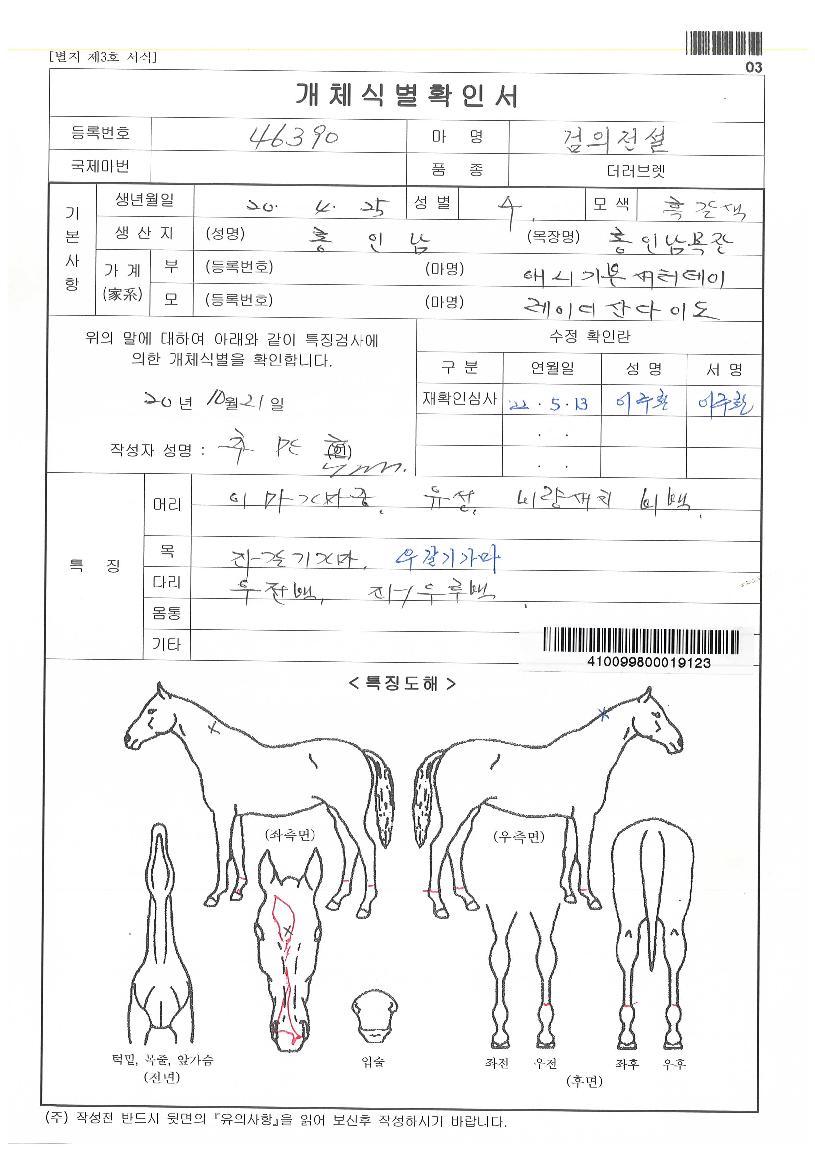 [별지 제3호 서식]
03
개체식별확인서
등록번호 46390 마 명 검의전설
국제마번 품 종 더러브렛
기본사항
생년월일 20. 4. 25 성 별 수. 모 색 흑갈색
생 산 지 (성명) 홍 인 남 (목장명) 홍인남목장
가 계 (家系)
부 (등록번호) (마명) 애시기본새터데이
모 (등록번호) (마명) 레이디잔다이도
위의 말에 대하여 아래와 같이 특징검사에
의한 개체식별을 확인합니다.
20년 10월 21일
작성자 성명 : (인)
수정 확인란
구 분 연월일 성 명 서 명
재확인심사 22 . 5 . 13
. .
. .
특 징
머리 이마가마중, 유성, 비량세치 비백.
목 좌갈기가마, 우갈기가마
다리 우전백, 좌우후백.
몸통
기타
410099800019123
< 특징도해 >
(좌측면) (우측면)
턱밑, 목줄, 앞가슴
(전면)
입술
좌전 우전 좌후 우후
(후면)
(주) 작성전 반드시 뒷면의 『유의사항』을 읽어 보신후 작성하시기 바랍니다.